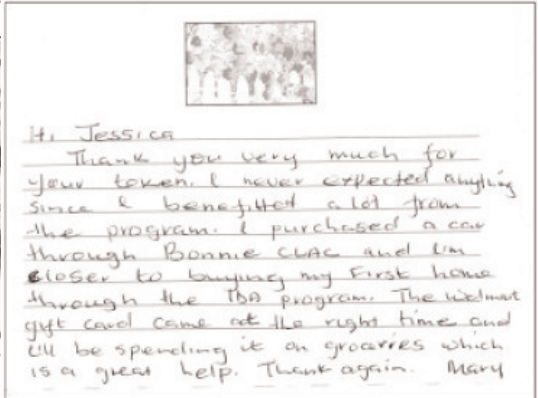 Hi Jessica
Thank you very much for
your token. I never expected anything
since I benefitted a lot from
the program. I purchased a car
through Bonnie CLAC and I'm
closer to buying my First home
through the IDA program. The Walmart
gift card came at the right time and
I'll be spending it on grocarries which
is a great help. Thank again. Mary